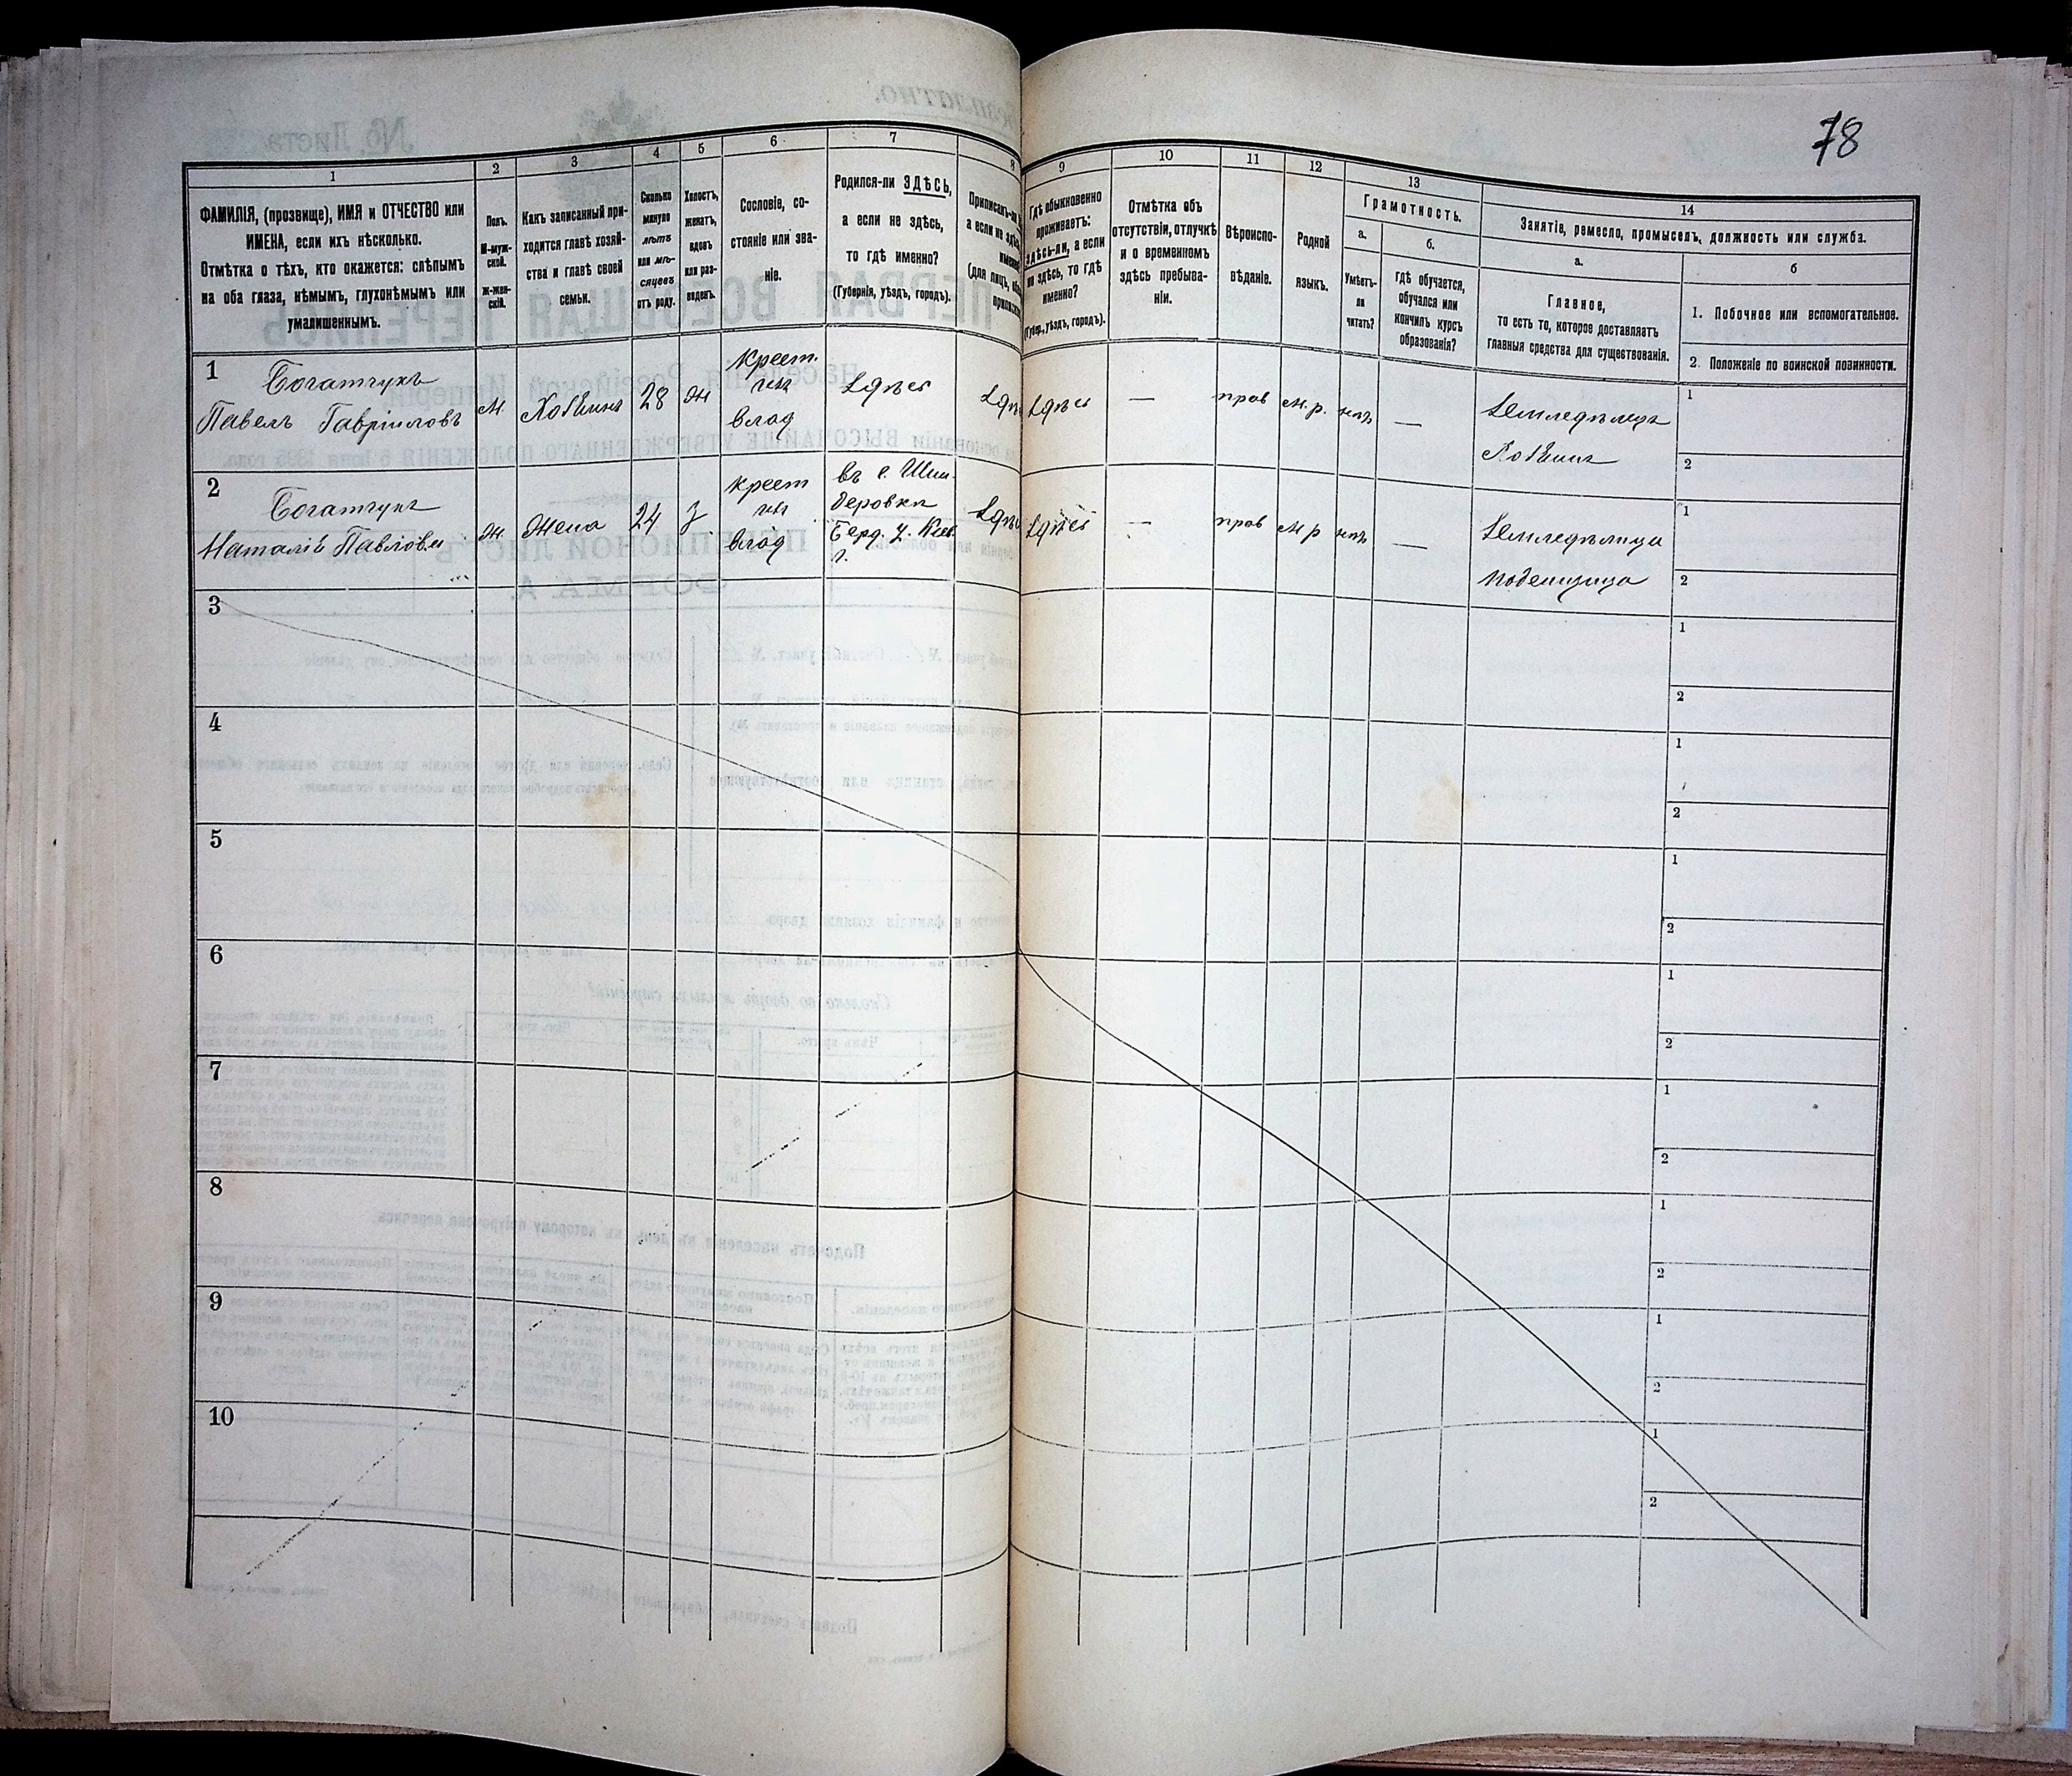 78
1
ФАМИЛІЯ, (прозвище), ИМЯ и ОТЧЕСТВО или
ИМЕНА, если ихъ нѣсколько.
Отмѣтка о тѣхъ, кто окажется: слѣпымъ
на оба глаза, нѣмымъ, глухонѣмымъ или
умалишеннымъ.
2
Полъ.
М-муж-
ской.
ж-жен-
скій.
3
Какъ записанный при-
ходится главѣ хозяй-
ства и главѣ своей
семьи.
4
Сколько
минуло
лѣтъ
или мѣ-
сяцевъ
отъ роду.
5
Холостъ,
женатъ,
вдовъ
или раз-
веденъ.
6
Сословіе, со-
стояніе или зва-
ніе.
7
Родился-ли ЗДѢСЬ,
а если не здѣсь,
то гдѣ именно?
(Губернія, уѣздъ, городъ).
8
9
Гдѣ обыкновенно
проживаетъ:
здѣсь-ли, а если
не здѣсь, то гдѣ
именно?
(Губер., уѣздъ, городъ).
10
Отмѣтка объ
отсутствіи, отлучкѣ
и о временномъ
здѣсь пребыва-
ніи.
11
Вѣроиспо-
вѣданіе.
12
Родной
языкъ.
13
Грамотность.
а.
Умѣетъ-
ли
читать?
б.
гдѣ обучается,
обучался или
кончилъ курсъ
образованія?
14
Занятіе, ремесло, промыселъ, должность или служба.
а.
Главное,
то есть то, которое доставляетъ
главныя средства для существованія.
б
1. Побочное или вспомогательное.
2. Положеніе по воинской повинности.
1
Богатчукъ
Павелъ Гавріиловъ
м.
Хозяинъ
28
ж
крест.
изъ
влад
здѣсь
здѣсь
—
прав
м.р.
нѣтъ
—
Земледѣлецъ
Хозяинъ
1
2
2
Богатчукъ
Наталія Павлова
ж.
Жена
24
з
крест
изъ
влад
въ с.
Берд. у. Кіев.
г.
здѣсь
—
прав
м.р
нѣтъ
—
Земледѣлица
поденщица
1
2
3
1
2
4
1
2
5
1
2
6
1
2
7
1
2
8
1
2
9
1
2
10
1
2